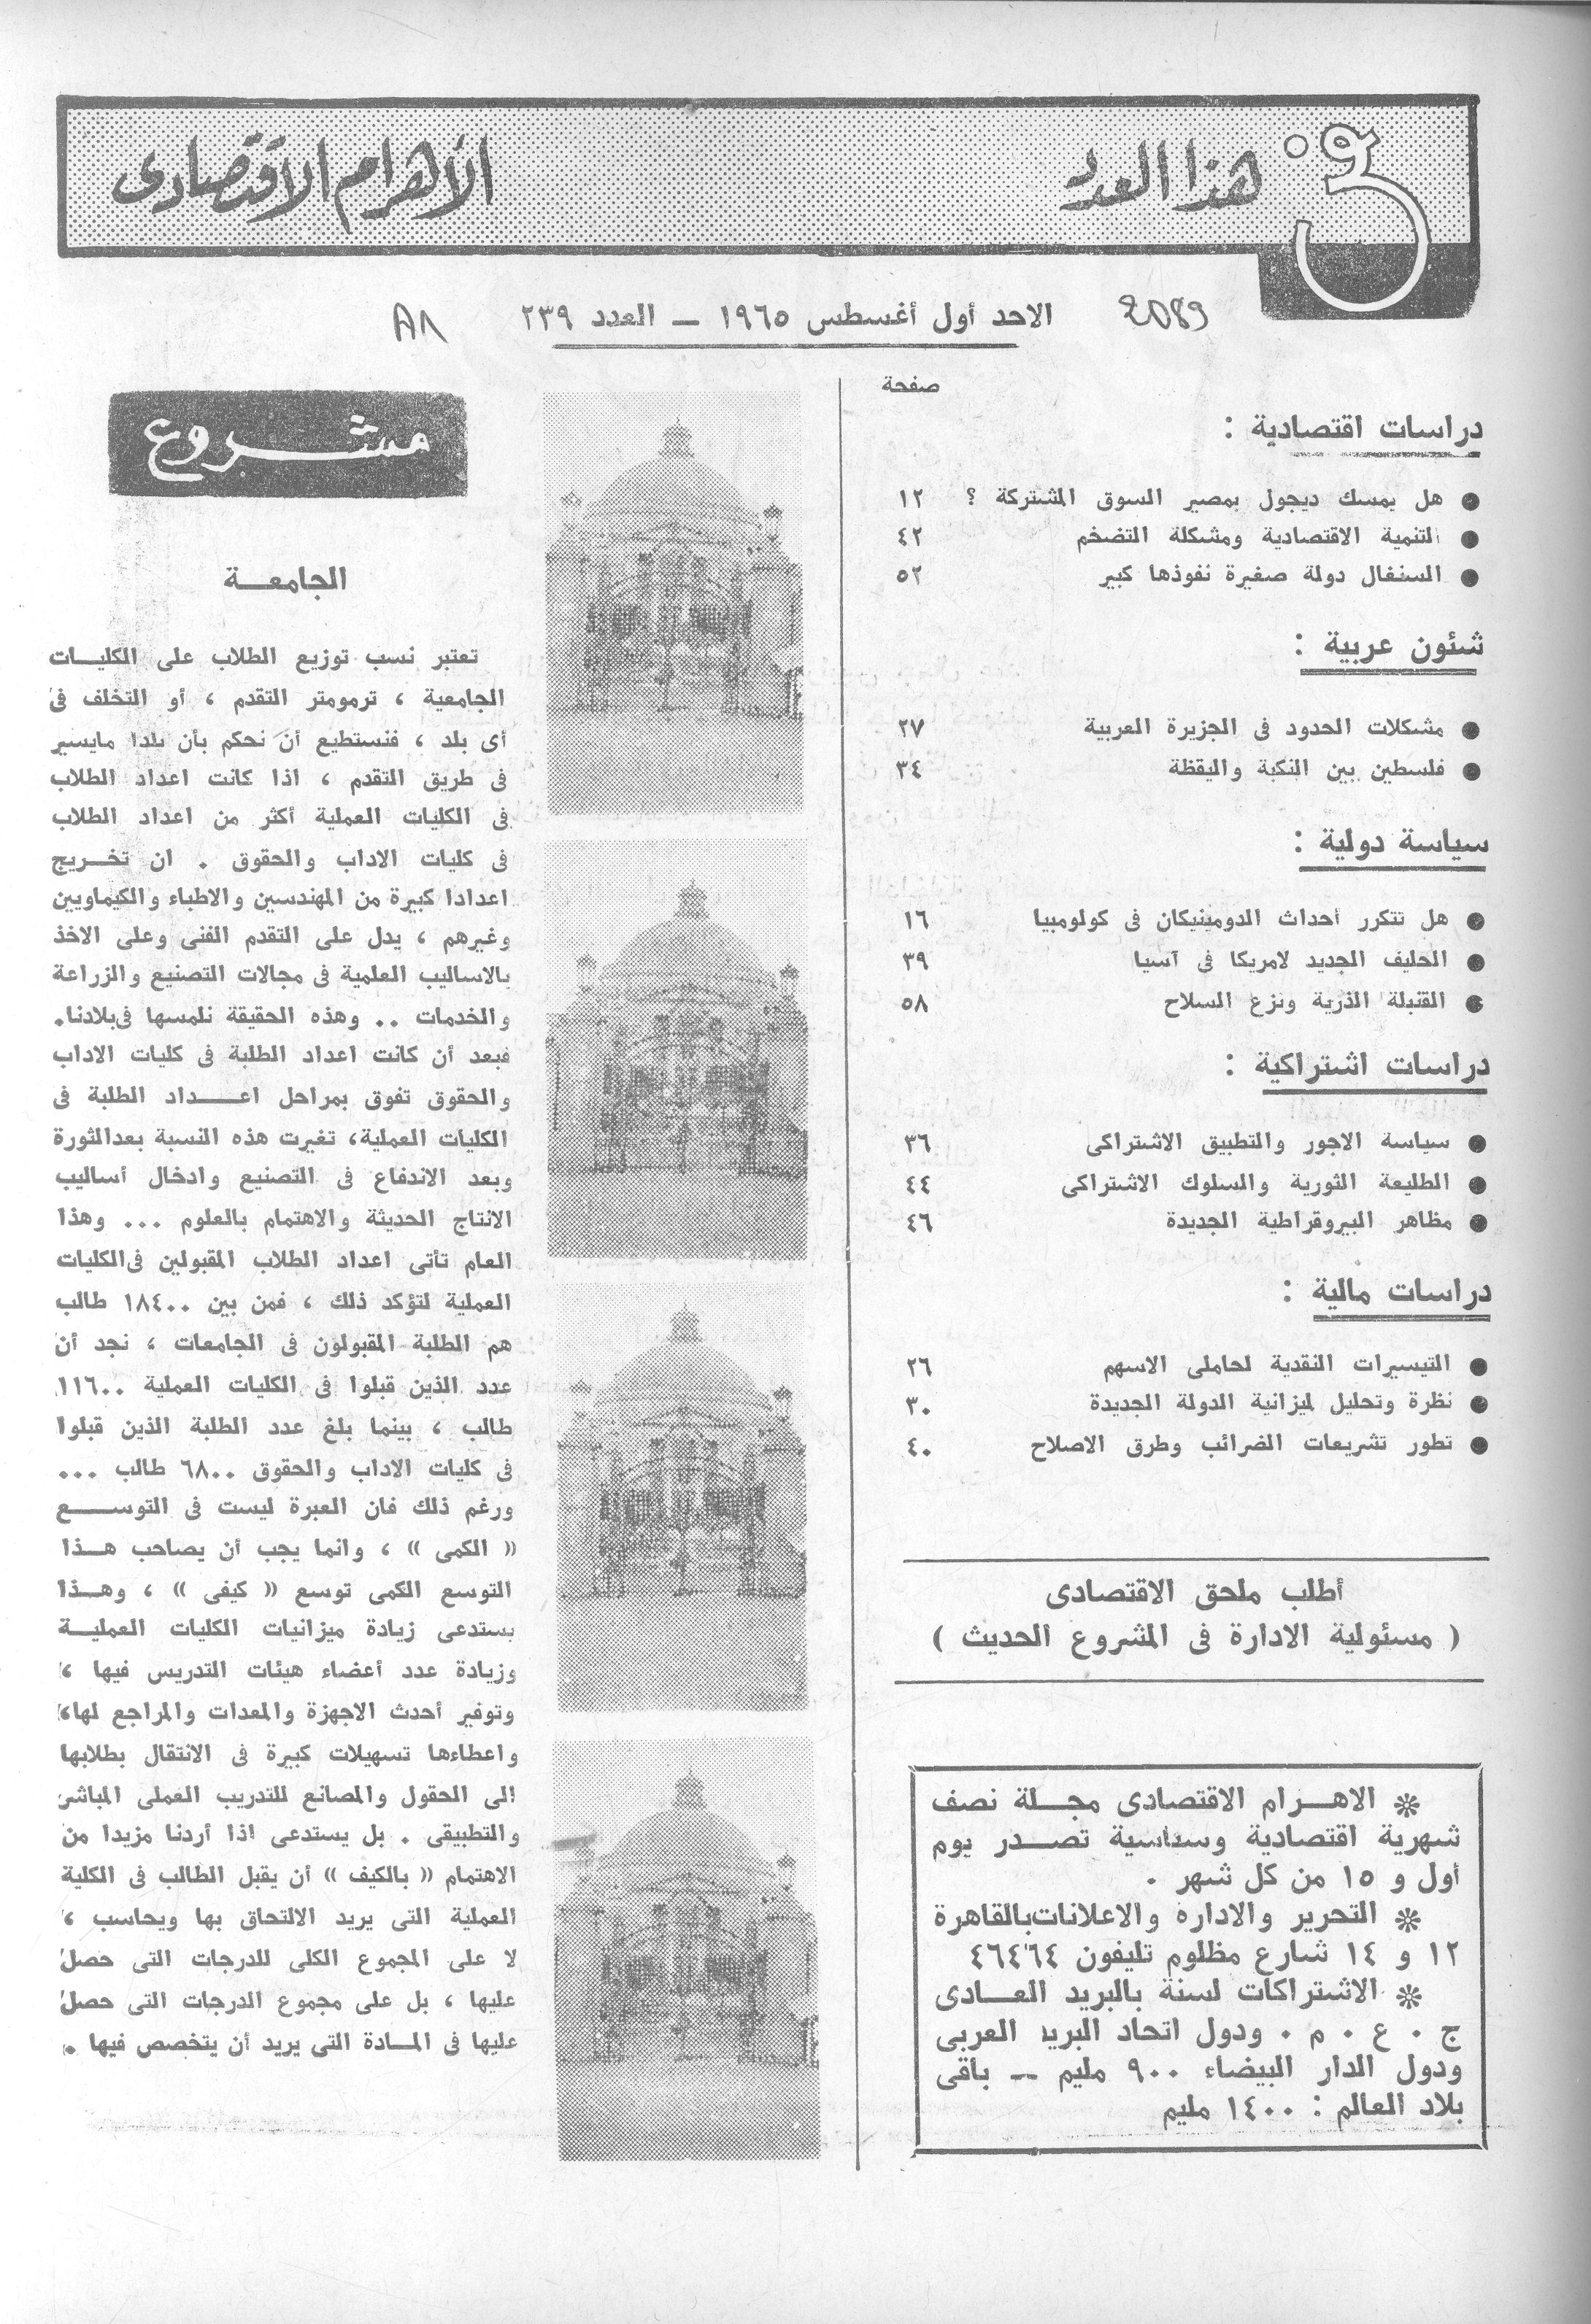 في هذا العدد
الأهرام الاقتصادى
2089
الاحد أول أغسطس ١٩٦٥ — العدد ٢٣٩
A٨
صفحة
دراسات اقتصادية :
● هل يمسك ديجول بمصير السوق المشتركة ؟ ١٢
● التنمية الاقتصادية ومشكلة التضخم ٤٢
● السنغال دولة صغيرة نفوذها كبير ٥٢
شئون عربية :
● مشكلات الحدود فى الجزيرة العربية ٢٧
● فلسطين بين النكبة واليقظة ٣٤
سياسة دولية :
● هل تتكرر أحداث الدومينيكان فى كولومبيا ١٦
● الحليف الجديد لامريكا فى آسيا ٣٩
● القنبلة الذرية ونزع السلاح ٥٨
دراسات اشتراكية :
● سياسة الاجور والتطبيق الاشتراكى ٣٦
● الطليعة الثورية والسلوك الاشتراكى ٤٤
● مظاهر البيروقراطية الجديدة ٤٦
دراسات مالية :
● التيسيرات النقدية لحاملى الاسهم ٢٦
● نظرة وتحليل لميزانية الدولة الجديدة ٣٠
● تطور تشريعات الضرائب وطرق الاصلاح ٤٠
أطلب ملحق الاقتصادى
( مسئولية الادارة فى المشروع الحديث )
❊ الاهـرام الاقتصادى مجـلة نصف
شهرية اقتصادية وسياسية تصـدر يوم
أول و ١٥ من كل شهر .
❊ التحرير والادارة والاعلانات بالقاهرة
١٢ و ١٤ شارع مظلوم تليفون ٤٦٤٦٤
❊ الاشتراكات لسنة بالبريد العـادى
ج . ع . م . ودول اتحاد البريد العربى
ودول الدار البيضاء ٩٠٠ مليم — باقى
بلاد العالم : ١٤٠٠ مليم
مشـروع
الجامعـة
تعتبر نسب توزيع الطلاب على الكليـات
الجامعية ، ترمومتر التقدم ، أو التخلف فى
أى بلد ، فنستطيع أن نحكم بأن بلدا مايسير
فى طريق التقدم ، اذا كانت اعداد الطلاب
فى الكليات العملية أكثر من اعداد الطلاب
فى كليات الاداب والحقوق . ان تخـريج
اعدادا كبيرة من المهندسين والاطباء والكيماويين
وغيرهم ، يدل على التقدم الفنى وعلى الاخذ
بالاساليب العلمية فى مجالات التصنيع والزراعة
والخدمات .. وهذه الحقيقة نلمسها فى بلادنا.
فبعد أن كانت اعداد الطلبة فى كليات الاداب
والحقوق تفوق بمراحل اعـداد الطلبة فى
الكليات العملية، تغيرت هذه النسبة بعد الثورة
وبعد الاندفاع فى التصنيع وادخال أساليب
الانتاج الحديثة والاهتمام بالعلوم ... وهذا
العام تأتى اعداد الطلاب المقبولين فى الكليات
العملية لتؤكد ذلك ، فمن بين ١٨٤٠٠ طالب
هم الطلبة المقبولون فى الجامعات ، نجد أن
عدد الذين قبلوا فى الكليات العملية ١١٦٠٠
طالب ، بينما بلغ عدد الطلبة الذين قبلوا
فى كليات الاداب والحقوق ٦٨٠٠ طالب ...
ورغم ذلك فان العبرة ليست فى التوسـع
« الكمى » ، وانما يجب أن يصاحب هـذا
التوسع الكمى توسع « كيفى » ، وهـذا
يستدعى زيادة ميزانيات الكليات العمليـة
وزيادة عدد أعضاء هيئات التدريس فيها ،
وتوفير أحدث الاجهزة والمعدات والمراجع لها،
واعطاءها تسهيلات كبيرة فى الانتقال بطلابها
الى الحقول والمصانع للتدريب العملى المباشر
والتطبيقى . بل يستدعى اذا أردنا مزيدا من
الاهتمام « بالكيف » أن يقبل الطالب فى الكلية
العملية التى يريد الالتحاق بها ويحاسب ،
لا على المجموع الكلى للدرجات التى حصل
عليها ، بل على مجموع الدرجات التى حصل
عليها فى المـادة التى يريد أن يتخصص فيها .